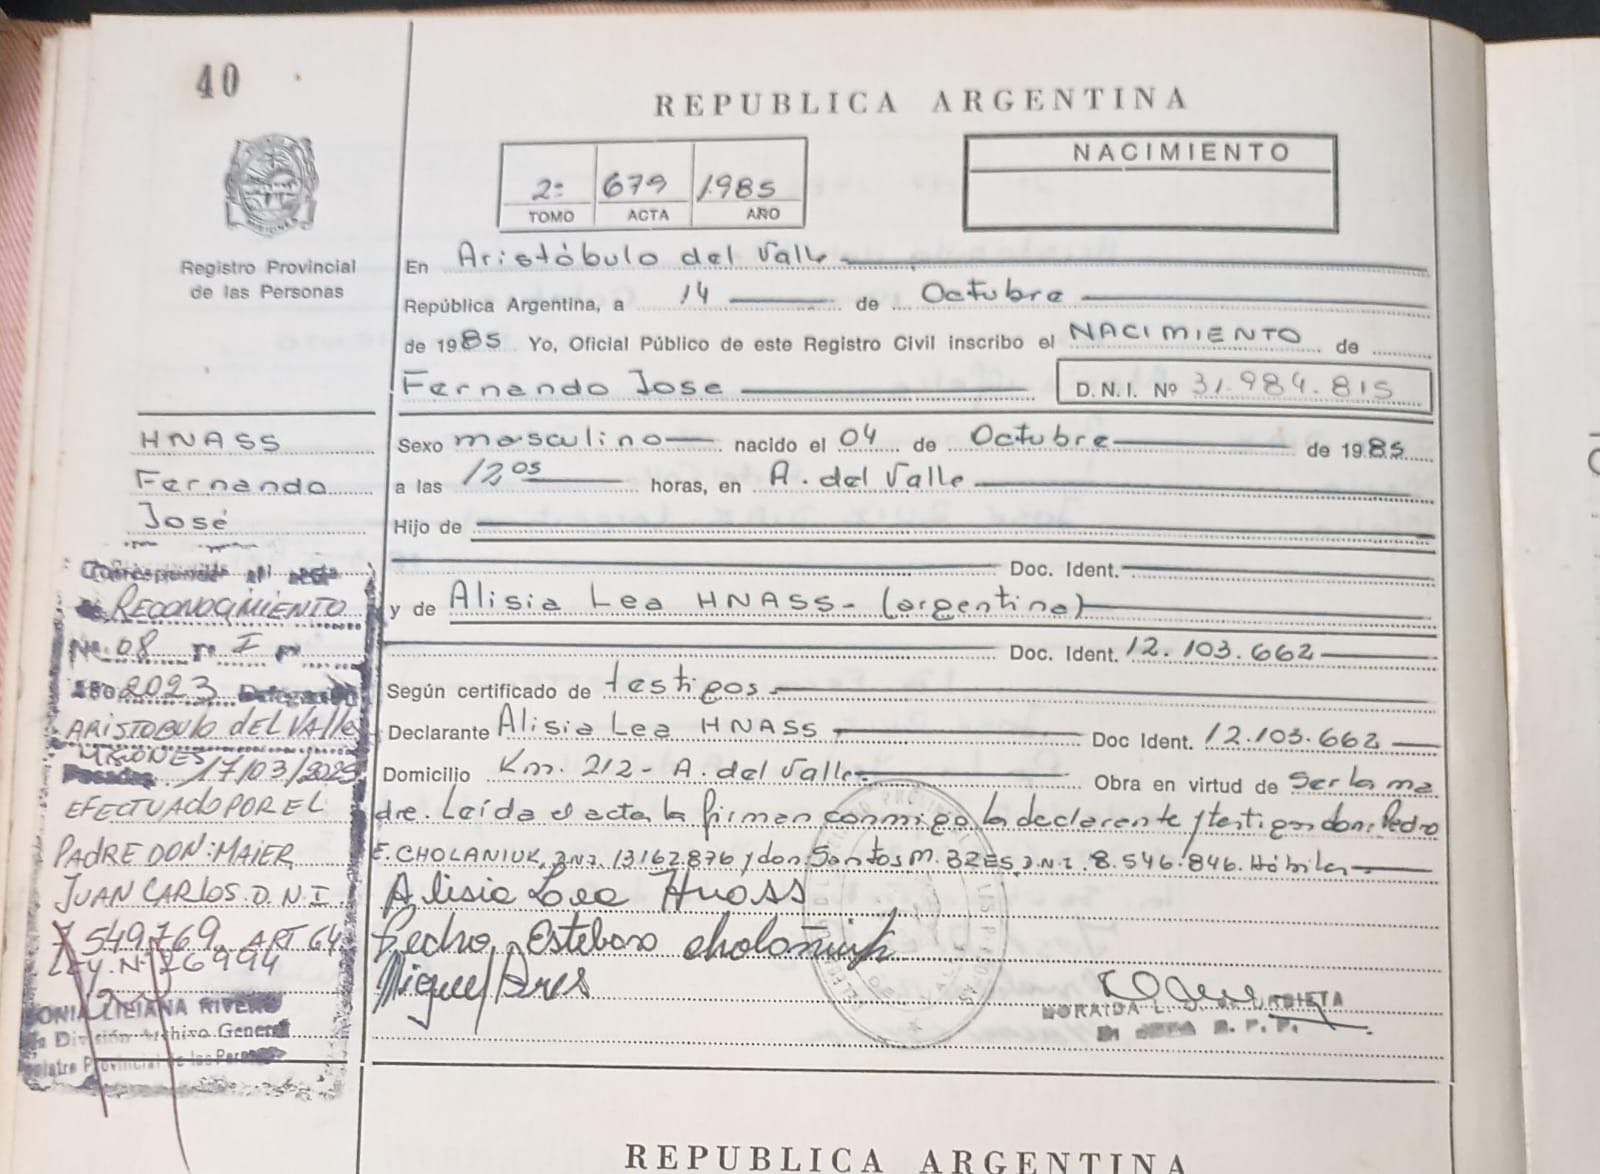 40
REPUBLICA ARGENTINA
2º 679 1985
TOMO ACTA AÑO
NACIMIENTO
Registro Provincial
de las Personas
En Aristóbulo del Valle
República Argentina, a 14 de Octubre
de 1985 Yo, Oficial Público de este Registro Civil inscribo el NACIMIENTO de
Fernando Jose D.N.I. Nº 31.984.815
HNASS
Fernando
José
Sexo masculino nacido el 04 de Octubre de 1985
a las 12,05 horas, en A. del Valle
Hijo de
Doc. Ident.
y de Alisia Lea HNASS- (argentina)
Doc. Ident. 12.103.662
Según certificado de testigos
Declarante Alisia Lea HNASS Doc Ident. 12.103.662
Domicilio Km. 212- A. del Valle Obra en virtud de Ser la ma
dre. Leída el acta la firman conmigo la declarante y testigos don: Pedro
E. CHOLANIUK, D.N.I. 13162.876 y don Santos M. D.N.I. 8.546.846. Hábiles
Alisia Lea Hnass
Pedro Esteban
Miguel
Corresponde al acta
RECONOCIMIENTO
Nº 08 Tº I
Año 2023 Delegación
ARISTOBULO DEL VALLE
MISIONES
Posadas 17/03/2025
EFECTUADO POR EL
PADRE DON: MAIER
JUAN CARLOS D.N.I
7549769 ART 64
LEY Nº 26994
SONIA LILIANA RIVERO
División Archivo General
Registro Provincial de las Personas
REPUBLICA ARGENTINA